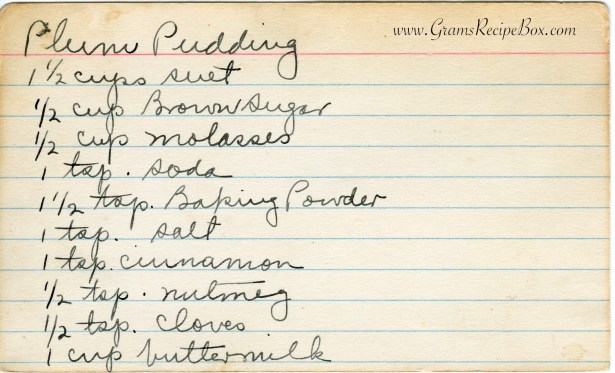 www.GramsRecipeBox.com
Plum Pudding
1 1/2 cups suet
1/2 cup Brown Sugar
1/2 cup molasses
1 tsp. soda
1 1/2 tsp. Baking Powder
1 tsp. salt
1 tsp. cinnamon
1/2 tsp. nutmeg
1/2 tsp. cloves
1 cup buttermilk